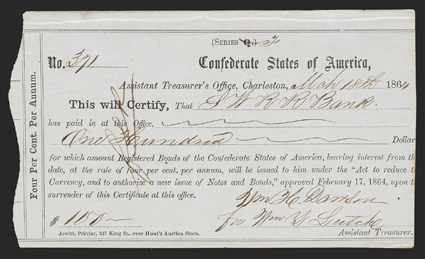 (SERIES
No. 391 Confederate States of America,
Assistant Treasurer's Office, Charleston, March 18th 1864
This will Certify, That S W R R Bank
has paid in at this Office,
One Hundred Dollar
for which amount Registered Bonds of the Confederate States of America, bearing interest from th
date, at the rate of four per cent. per annum, will be issued to him under the "Act to reduce t
Currency, and to authorize a new issue of Notes and Bonds," approved February 17, 1864, upon
surrender of this Certificate at this office.
Wm H
$ 100 for Wm Y Leitch
Assistant Treasurer.
Jowitt, Printer, 347 King St., over Hunt's Auction Store.
Four Per Cent. Per Annum.